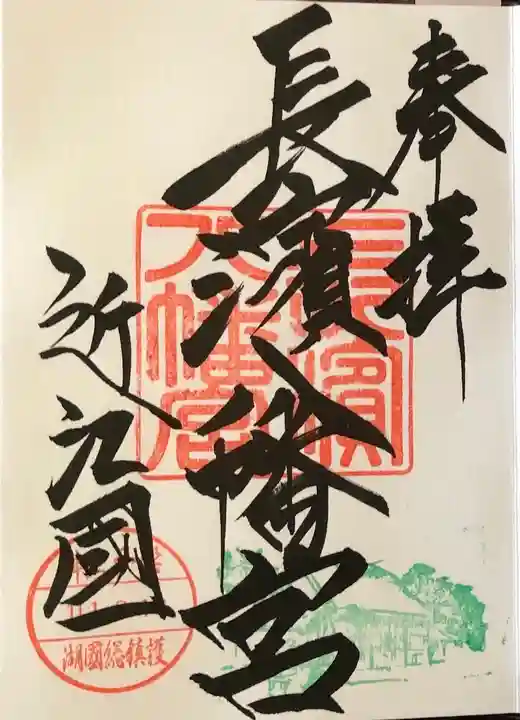 奉拝
長濱八幡宮
近江國
長濱
八幡宮
湖國総鎮護